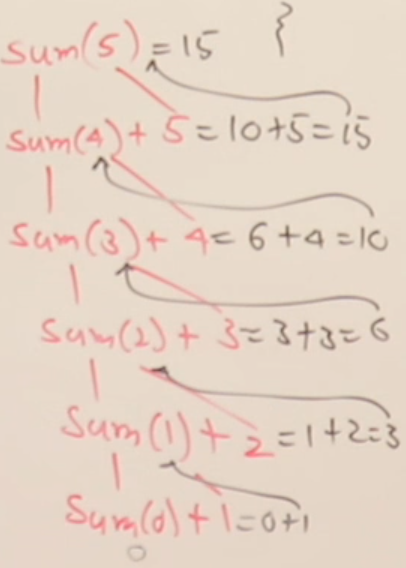 sum(5) = 15 }
sum(4) + 5 = 10+5 = 15
sum(3) + 4 = 6 + 4 = 10
sum(2) + 3 = 3+3 = 6
sum(1) + 2 = 1+2=3
sum(0) + 1 = 0+1
0